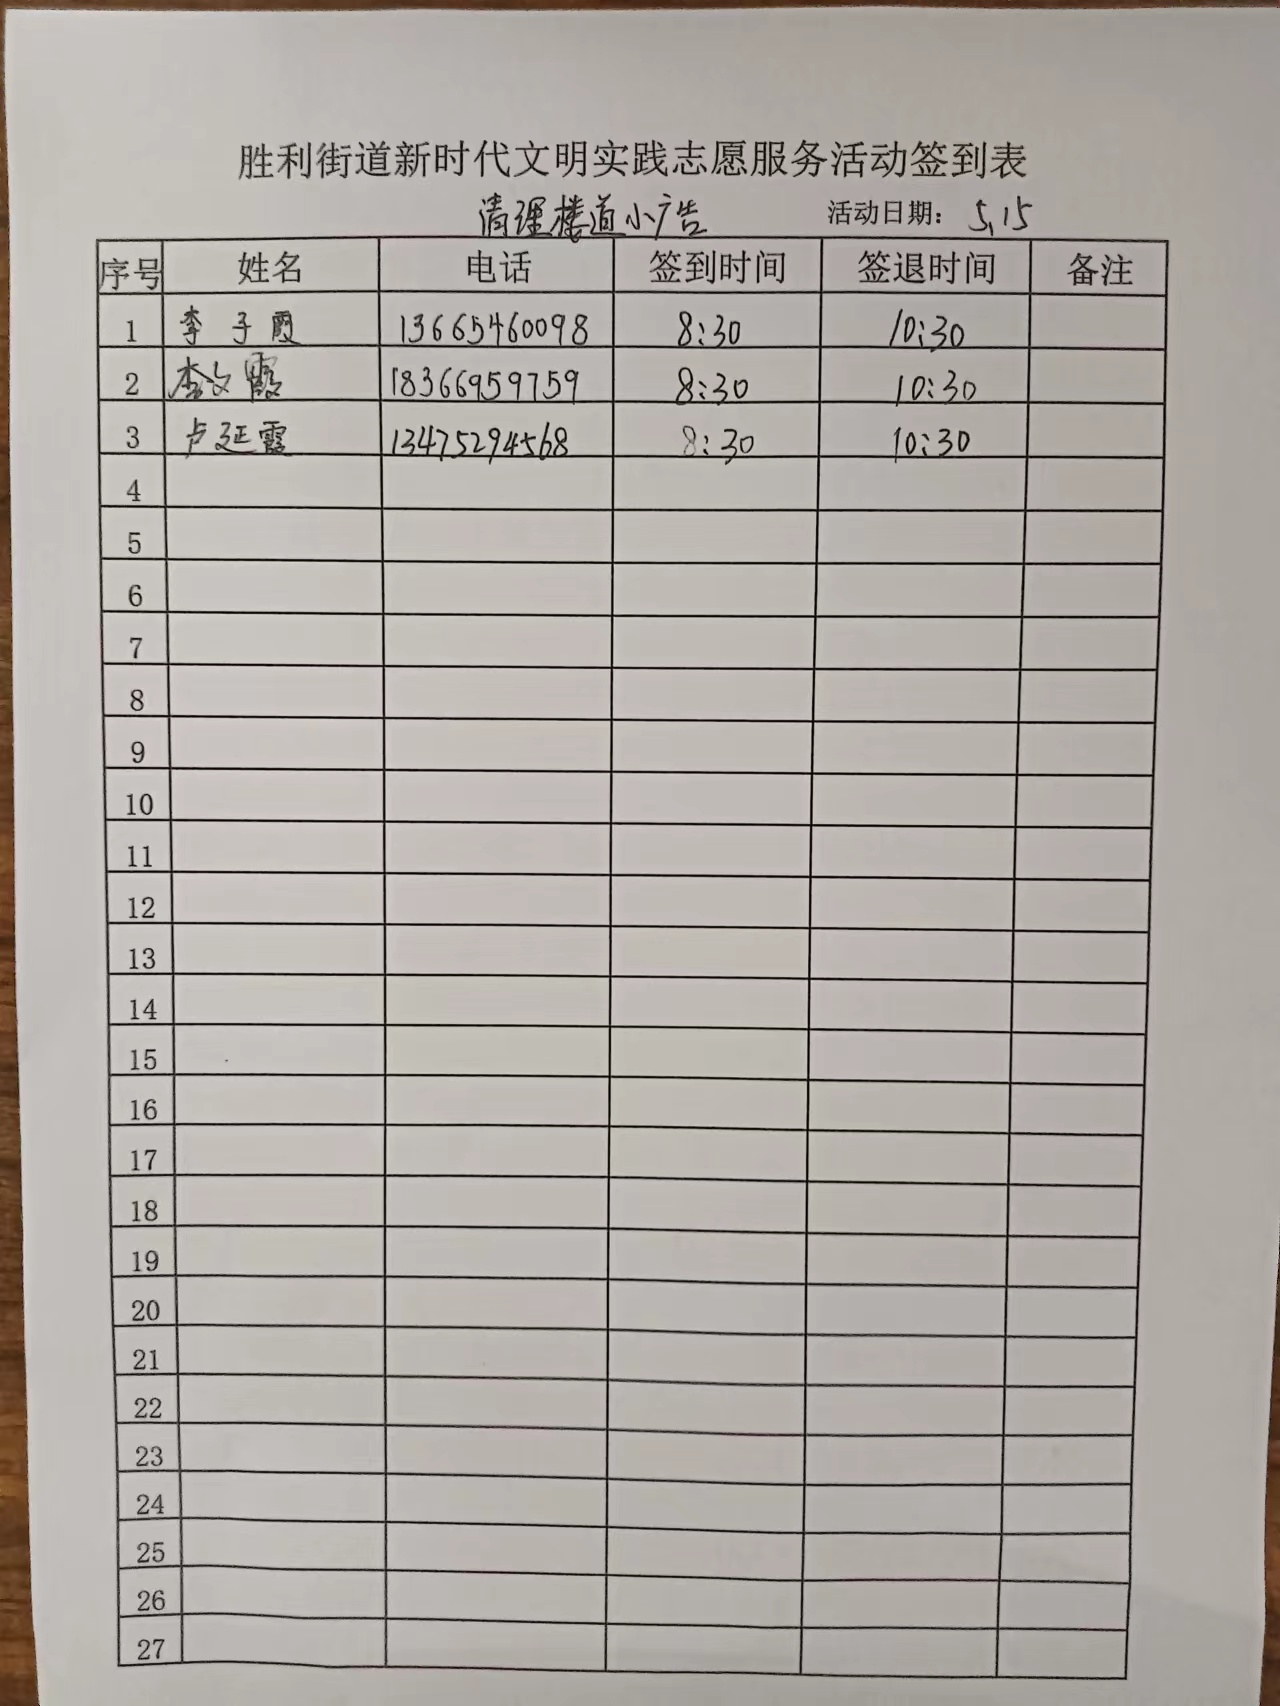 胜利街道新时代文明实践志愿服务活动签到表
清理楼道小广告 活动日期： 5.15
序号 姓名 电话 签到时间 签退时间 备注
1 李子霞 13665460098 8:30 10:30
2 李文霞 18366959759 8:30 10:30
3 卢延霞 13475294568 8:30 10:30
4
5
6
7
8
9
10
11
12
13
14
15
16
17
18
19
20
21
22
23
24
25
26
27